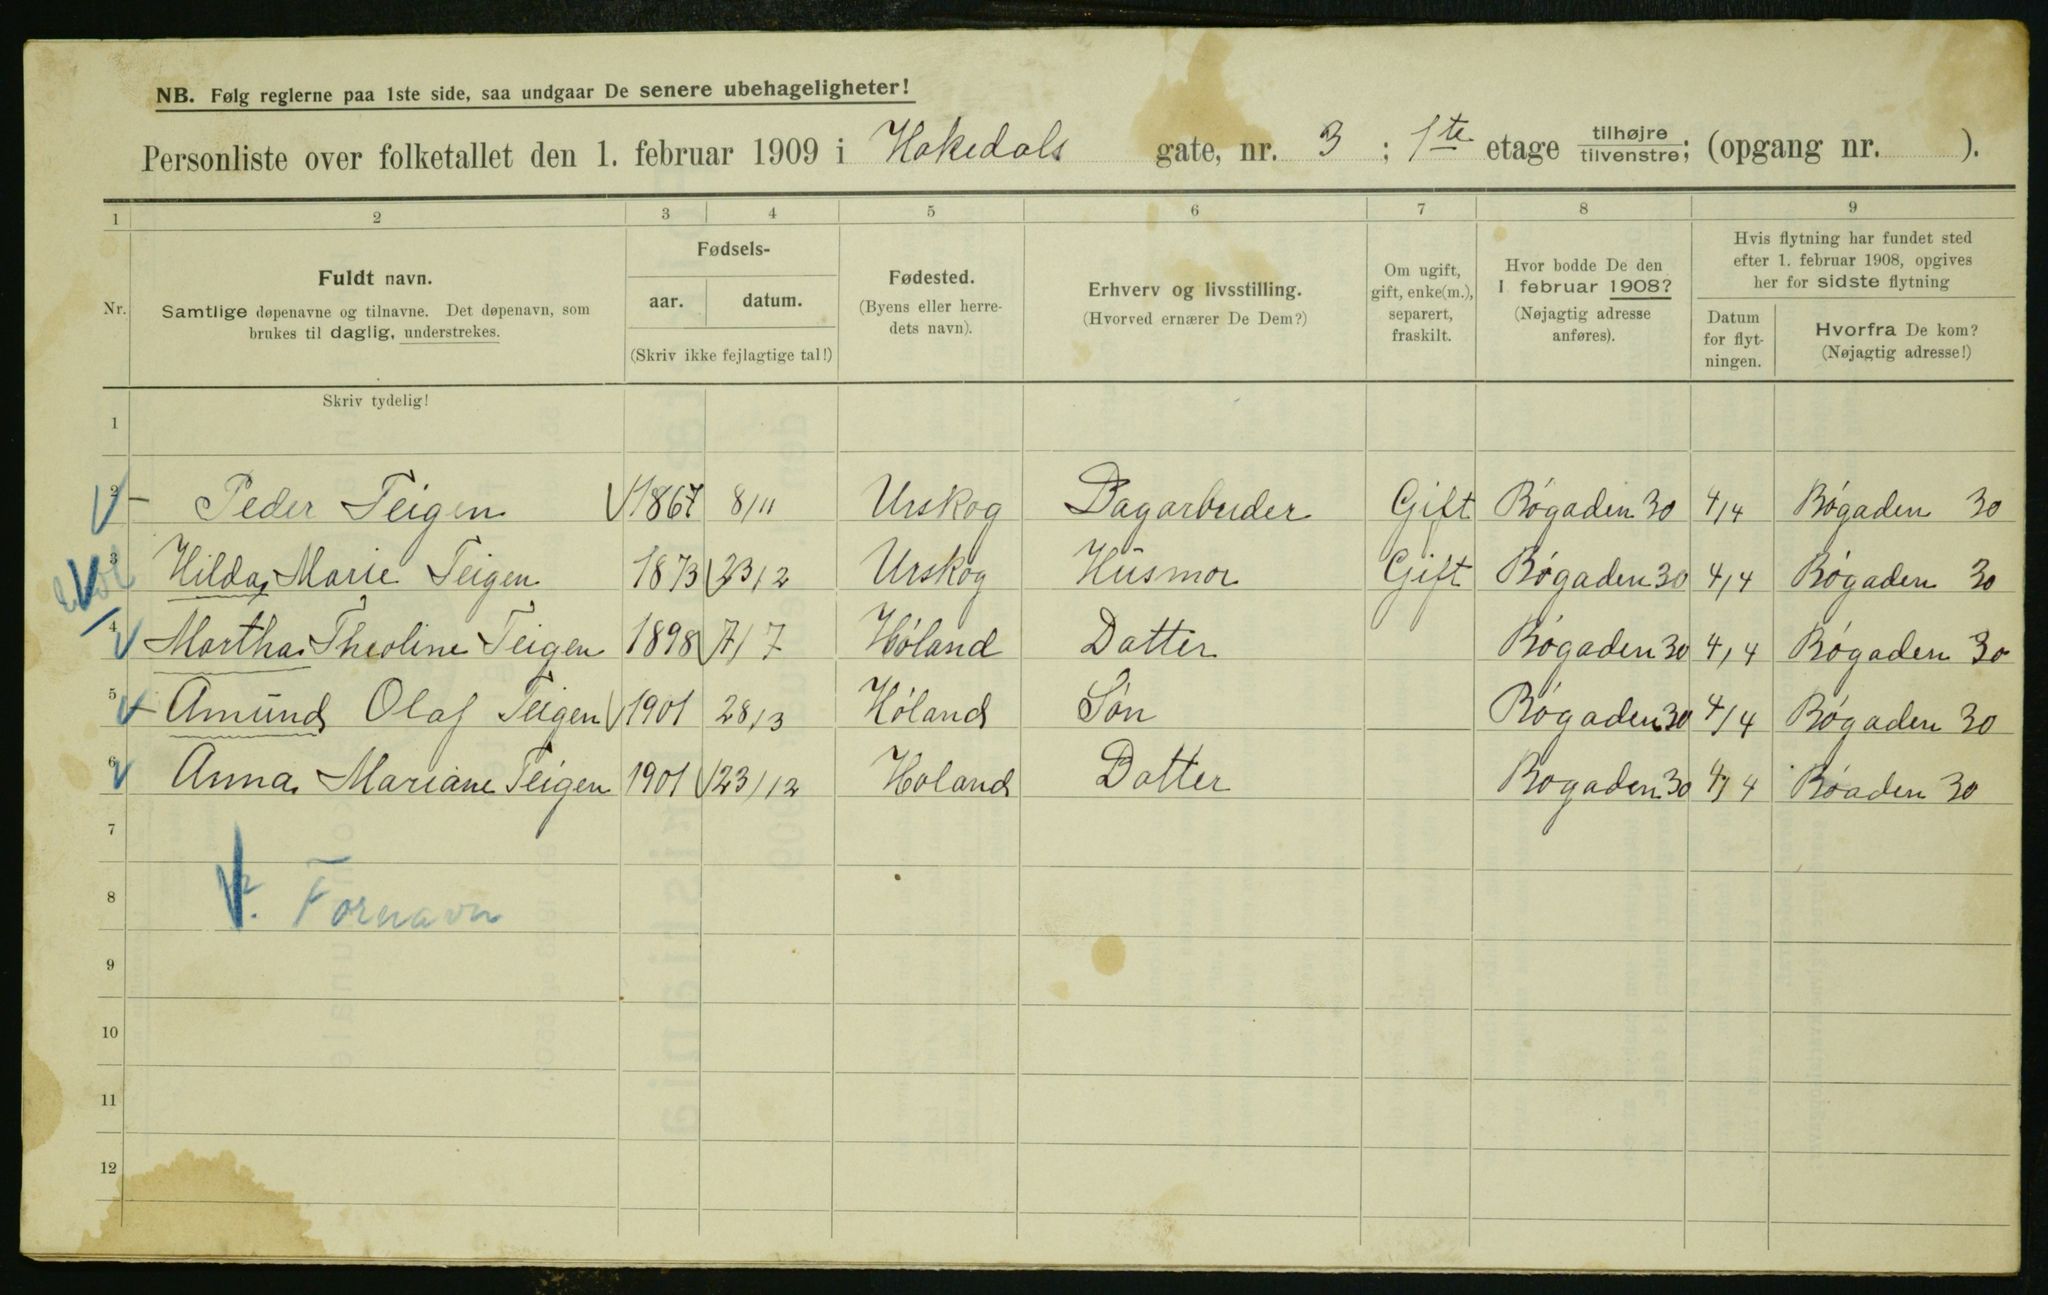 NB. Følg reglerne paa 1ste side, saa undgaar De senere ubehageligheter!
Personliste over folketallet den 1. februar 1909 i Hakedals gate, nr. 3 ; 1ste etage tilhøjre tilvenstre; (opgang nr. ).
1 2 3 4 5 6 7 8 9
Nr.
Fuldt navn.
Samtlige døpenavne og tilnavne. Det døpenavn, som
brukes til daglig, understrekes.
Fødsels-
aar. datum.
(Skriv ikke fejlagtige tal!)
Fødested.
(Byens eller herre-
dets navn).
Erhverv og livsstilling.
(Hvorved ernærer De Dem?)
Om ugift,
gift, enke(m.),
separert,
fraskilt.
Hvor bodde De den
1 februar 1908?
(Nøjagtig adresse
anføres).
Hvis flytning har fundet sted
efter 1. februar 1908, opgives
her for sidste flytning
Datum
for flyt-
ningen.
Hvorfra De kom?
(Nøjagtig adresse!)
Skriv tydelig!
1
2 Peder Teigen 1867 8/11 Urskog Dagarbeider Gift Bógaden 30 4/4 Bógaden 30
3 Hilda Marie Teigen 1873 23/2 Urskog Husmor Gift Bógaden 30 4/4 Bógaden 30
4 Martha Theoline Teigen 1898 7/7 Hóland Datter Bógaden 30 4/4 Bógaden 30
5 Amund Olaf Teigen 1901 28/3 Hóland Són Bógaden 30 4/4 Bógaden 30
6 Anna Mariane Teigen 1901 23/12 Holand Datter Bogaden 30 4/4 Bóaden 30
7
8 Fornavn
9
10
11
12